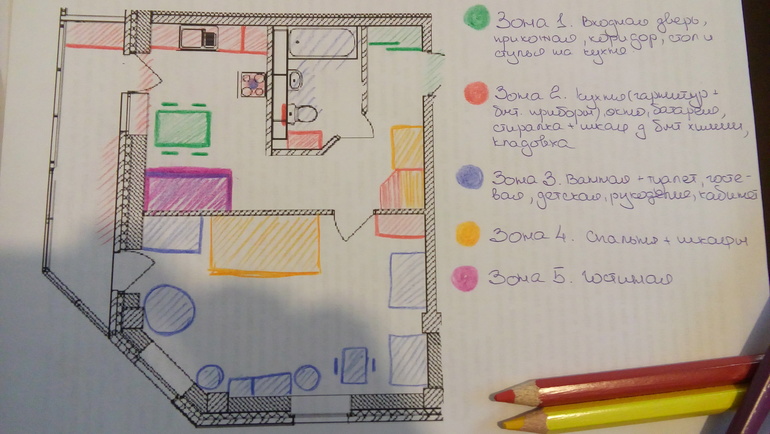 Зона 1. Входная дверь,
прихожая, коридор, стол и
стулья на кухне
Зона 2. Кухня (гарнитур +
быт. приборы), окно, батарея,
стиралка + шкаф д быт химии,
кладовка
Зона 3. Ванная + туалет, госте-
вая, детская, рукоделие, кабинет
Зона 4. Спальня + шкафы
Зона 5. Гостиная